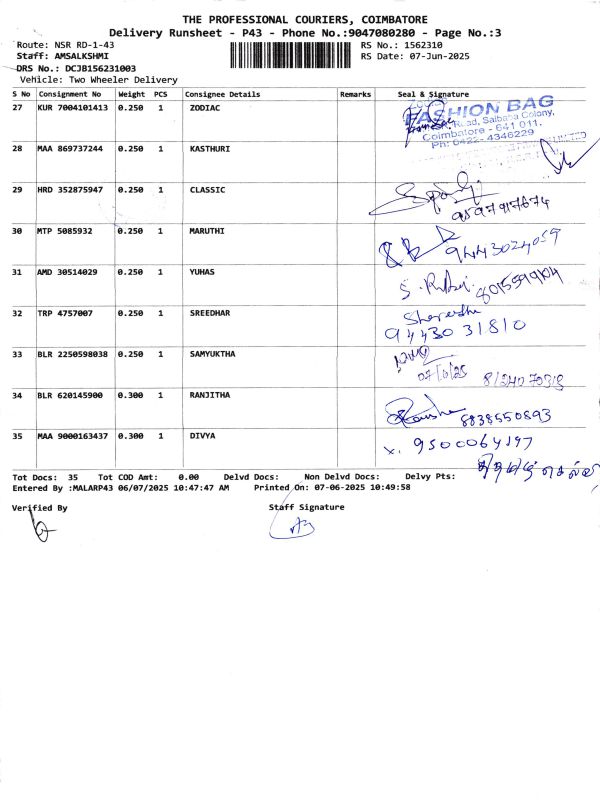 THE PROFESSIONAL COURIERS, COIMBATORE
Delivery Runsheet - P43 - Phone No.:9047080280 - Page No.:3
Route: NSR RD-1-43 RS No.: 1562310
Staff: AMSALKSHMI RS Date: 07-Jun-2025
DRS No.: DCJB156231003
Vehicle: Two Wheeler Delivery
S No Consignment No Weight PCS Consignee Details Remarks Seal & Signature
27 KUR 7004101413 0.250 1 ZODIAC
FASHION BAG
Road, Saibaba Colony,
Coimbatore - 641 011.
Ph: 0422- 4346229
28 MAA 869737244 0.250 1 KASTHURI
LIMITED
29 HRD 352875947 0.250 1 CLASSIC
9597917674
30 MTP 5085932 0.250 1 MARUTHI
9443024059
31 AMD 30514029 0.250 1 YUHAS
32 TRP 4757007 0.250 1 SREEDHAR
9443031810
33 BLR 2250598038 0.250 1 SAMYUKTHA
07/6/25
34 BLR 620145900 0.300 1 RANJITHA
8838550893
35 MAA 9000163437 0.300 1 DIVYA
x. 9500064197
Tot Docs: 35 Tot COD Amt: 0.00 Delvd Docs: Non Delvd Docs: Delvy Pts:
Entered By :MALARP43 06/07/2025 10:47:47 AM Printed On: 07-06-2025 10:49:58
Verified By Staff Signature